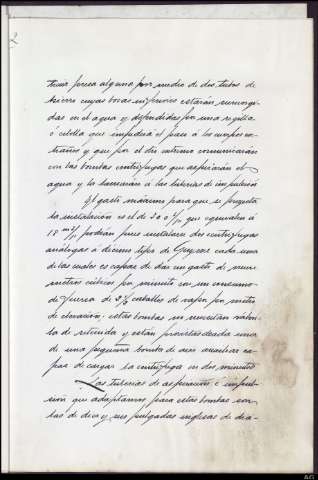 2
truir fuerza alguna por medio de dos tubos de
hierro cuyas bocas inferiores estarán sumergi-
das en el agua y defendidas por una rejilla
ó cebolla que impedirá el paso á los cuerpos es-
traños y que por el otro estremo comunicarán
con las bombas centrífugas que aspirarán el
agua y la lanzarán á las tuberías de impulsión
El gasto máximo para que se proyecta
la instalación es el de 300 que equivalen á
18 podrán pues instalarse dos centrífugas
análogas á décimo tipo de cada una
de las cuales es capaz de dar un gasto de nueve
metros cúbicos por minuto con un consumo
de fuerza de caballos de vapor por metro
de elevación: estas bombas no necesitan válvu-
la de retenida y están provistas cada una
de una pequeña bomba de aire ca-
paz de cargar la centrífuga en dos minutos
Las tuberías de aspiración é impul-
sión que adaptamos para estas bombas son
las de doce y pulgadas inglesas de diá-